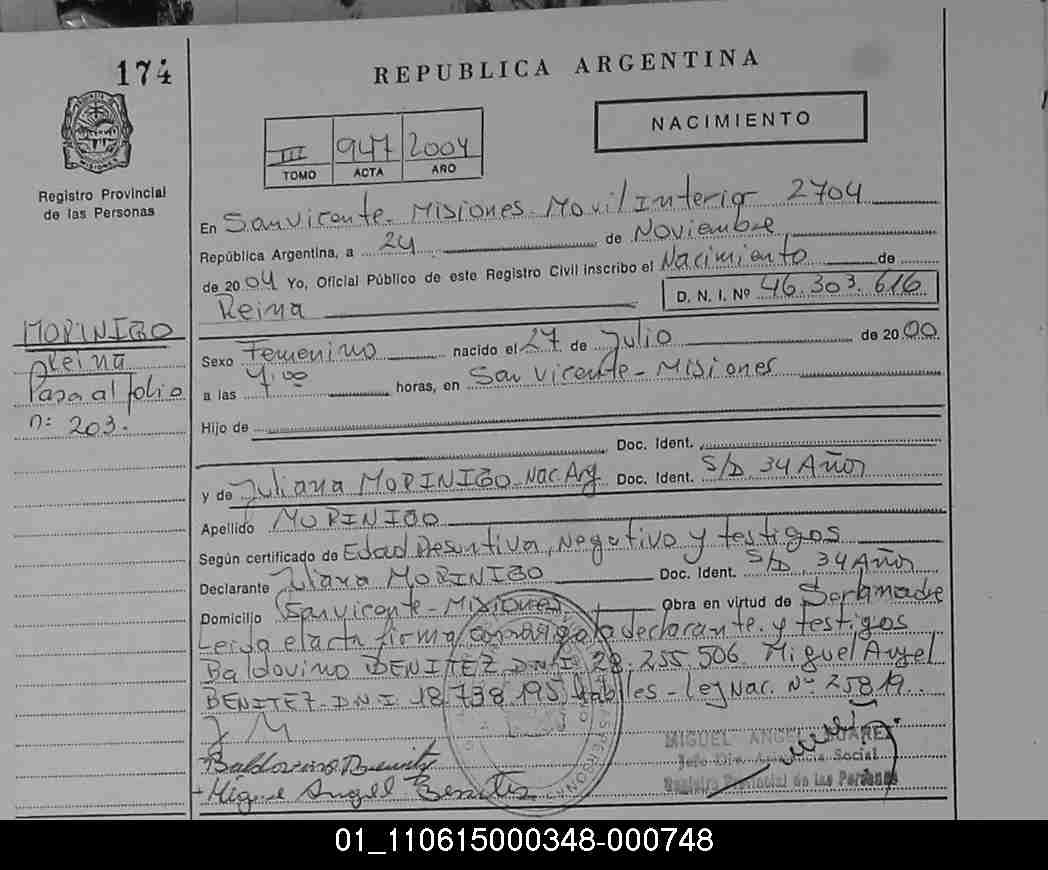 174
REPUBLICA ARGENTINA
NACIMIENTO
III 947 2004
TOMO ACTA AÑO
Registro Provincial
de las Personas
En San Vicente - Misiones - Movil Interior 2704
República Argentina, a 24 de Noviembre
de 2004 Yo, Oficial Público de este Registro Civil inscribo el Nacimiento de
Reina D. N. I. Nº 46.303.616
MORINIGO
Reina
Pasa al folio
nº 203.
Sexo Femenino nacido el 27 de Julio de 2000
a las 4,00 horas, en San Vicente - Misiones
Hijo de
Doc. Ident.
y de Juliana MORINIGO Nac. Arg Doc. Ident. S/D 34 Años
Apellido MORINIGO
Según certificado de Edad Presuntiva, Negativo y testigos
Declarante Juliana MORINIGO Doc. Ident. S/D 34 Años
Domicilio San Vicente - Misiones Obra en virtud de Ser la madre
Leida el acta firma conmigo la declarante y testigos
Baldovino BENITEZ D.N.I. 28.255.506 Miguel Angel
BENITEZ D.N.I 18.738.195 Habiles - Ley Nac. Nº 25819.
J M
MIGUEL ANGEL SUAREZ
Social
Registro Provincial de las Personas
Baldovino Benitez
Miguel Angel Benitez
01_110615000348-000748